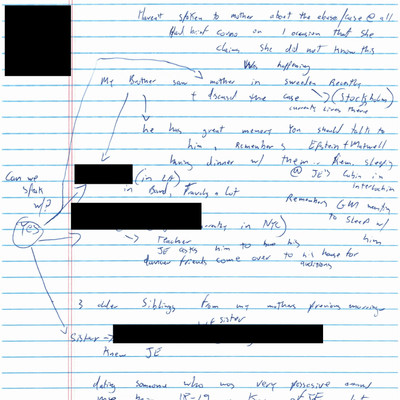 Haven't spoken to mother about the abuse/case @ all
Had brief convo on 1 occasion that she
claims she did not know this
Was happening
My Brother saw mother in Sweden Recently
+ discussed the case → (Stockholm)
currently lives there
he has great memory you should talk to
him, Remembers Epstein + Maxwell
having dinner w/ them. Rem. sleeping
@ JE's Cabin in
Interlochen
(in LA)
Can we
speak
w/?
in Band, Travels a Lot
Remembers GM wanting
to sleep w/
him
Yes
in NYC)
→ Teacher
JE asks him to have his
dancer friends come over to his house for
auditions
3 older Siblings from my mothers previous marriage
sister
Sister →
Knew JE
dating someone who was very possessive around
18-19
JE